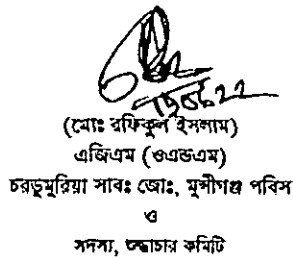 ১৯০৬২২
(মোঃ রফিকুল ইসলাম)
এজিএম (ওএন্ডএম)
চরডুমুরিয়া সাবঃ জোঃ, মুন্সীগঞ্জ পবিস
ও
সদস্য, শুদ্ধাচার কমিটি